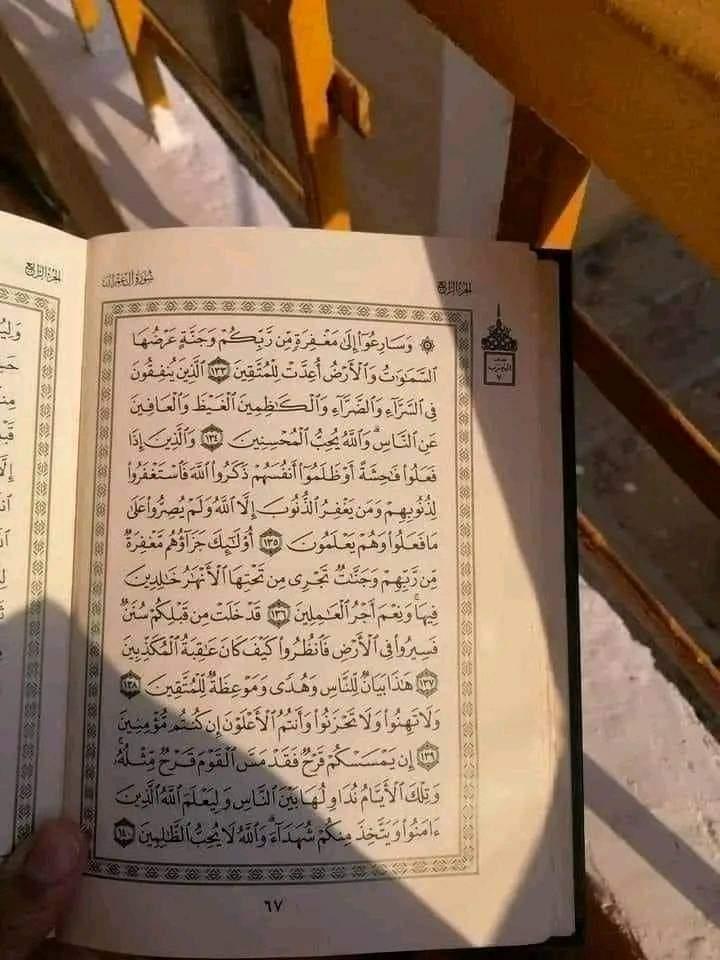 الجزء الرابع
سورة آل عمران
الجزء الرابع
۞ وَسَارِعُوٓا۟ إِلَىٰ مَغْفِرَةٍ مِّن رَّبِّكُمْ وَجَنَّةٍ عَرْضُهَا
ٱلسَّمَٰوَٰتُ وَٱلْأَرْضُ أُعِدَّتْ لِلْمُتَّقِينَ ١٣٣ ٱلَّذِينَ يُنفِقُونَ
فِى ٱلسَّرَّآءِ وَٱلضَّرَّآءِ وَٱلْكَٰظِمِينَ ٱلْغَيْظَ وَٱلْعَافِينَ
عَنِ ٱلنَّاسِ ۗ وَٱللَّهُ يُحِبُّ ٱلْمُحْسِنِينَ ١٣٤ وَٱلَّذِينَ إِذَا
فَعَلُوا۟ فَٰحِشَةً أَوْ ظَلَمُوٓا۟ أَنفُسَهُمْ ذَكَرُوا۟ ٱللَّهَ فَٱسْتَغْفَرُوا۟
لِذُنُوبِهِمْ وَمَن يَغْفِرُ ٱلذُّنُوبَ إِلَّا ٱللَّهُ وَلَمْ يُصِرُّوا۟ عَلَىٰ
مَا فَعَلُوا۟ وَهُمْ يَعْلَمُونَ ١٣٥ أُو۟لَٰٓئِكَ جَزَآؤُهُم مَّغْفِرَةٌ
مِّن رَّبِّهِمْ وَجَنَّٰتٌ تَجْرِى مِن تَحْتِهَا ٱلْأَنْهَٰرُ خَٰلِدِينَ
فِيهَا ۚ وَنِعْمَ أَجْرُ ٱلْعَٰمِلِينَ ١٣٦ قَدْ خَلَتْ مِن قَبْلِكُمْ سُنَنٌ
فَسِيرُوا۟ فِى ٱلْأَرْضِ فَٱنظُرُوا۟ كَيْفَ كَانَ عَٰقِبَةُ ٱلْمُكَذِّبِينَ
١٣٧ هَٰذَا بَيَانٌ لِّلنَّاسِ وَهُدًى وَمَوْعِظَةٌ لِّلْمُتَّقِينَ ١٣٨
وَلَا تَهِنُوا۟ وَلَا تَحْزَنُوا۟ وَأَنتُمُ ٱلْأَعْلَوْنَ إِن كُنتُم مُّؤْمِنِينَ
١٣٩ إِن يَمْسَسْكُمْ قَرْحٌ فَقَدْ مَسَّ ٱلْقَوْمَ قَرْحٌ مِّثْلُهُۥ ۚ
وَتِلْكَ ٱلْأَيَّامُ نُدَاوِلُهَا بَيْنَ ٱلنَّاسِ وَلِيَعْلَمَ ٱللَّهُ ٱلَّذِينَ
ءَامَنُوا۟ وَيَتَّخِذَ مِنكُمْ شُهَدَآءَ ۗ وَٱللَّهُ لَا يُحِبُّ ٱلظَّٰلِمِينَ ١٤٠
٦٧